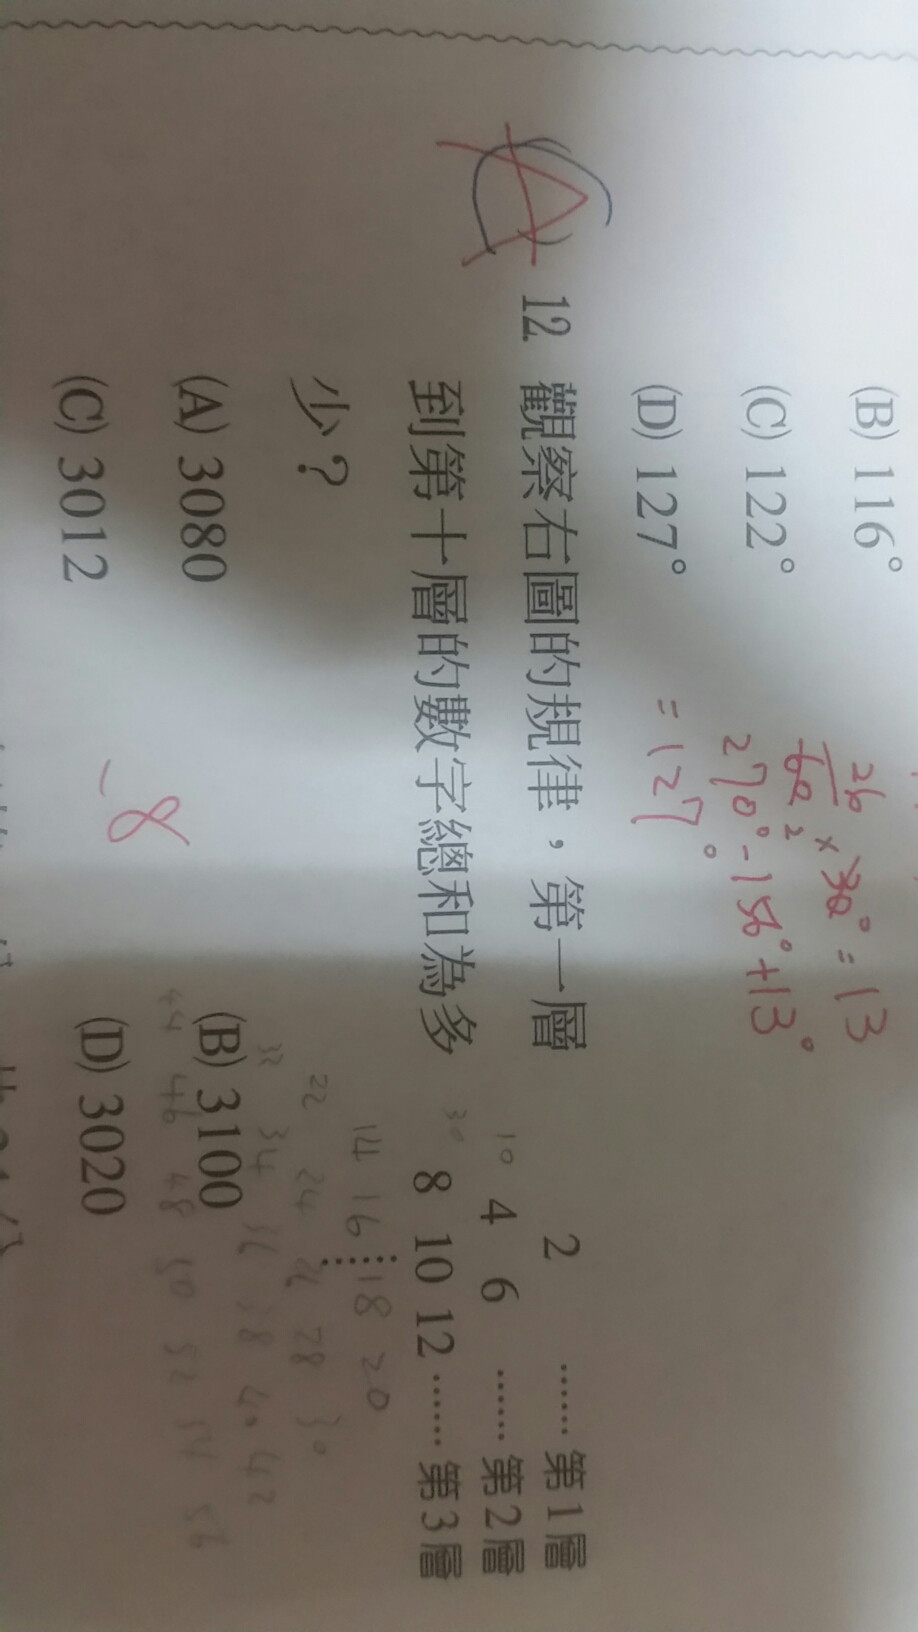 (B) 116°
(C) 122°
(D) 127°
26/60 × 30° = 13
2
270° - 156° + 13°
= 127°
A
12. 觀察右圖的規律，第一層
到第十層的數字總和為多
少？
(A) 3080
(B) 3100
(C) 3012
(D) 3020
-8
2 …… 第1層
4 6 …… 第2層
8 10 12 …… 第3層
10
30
14 16 18 20
22 24 26 28 30
32 34 36 38 40 42
44 46 48 50 52 54 56